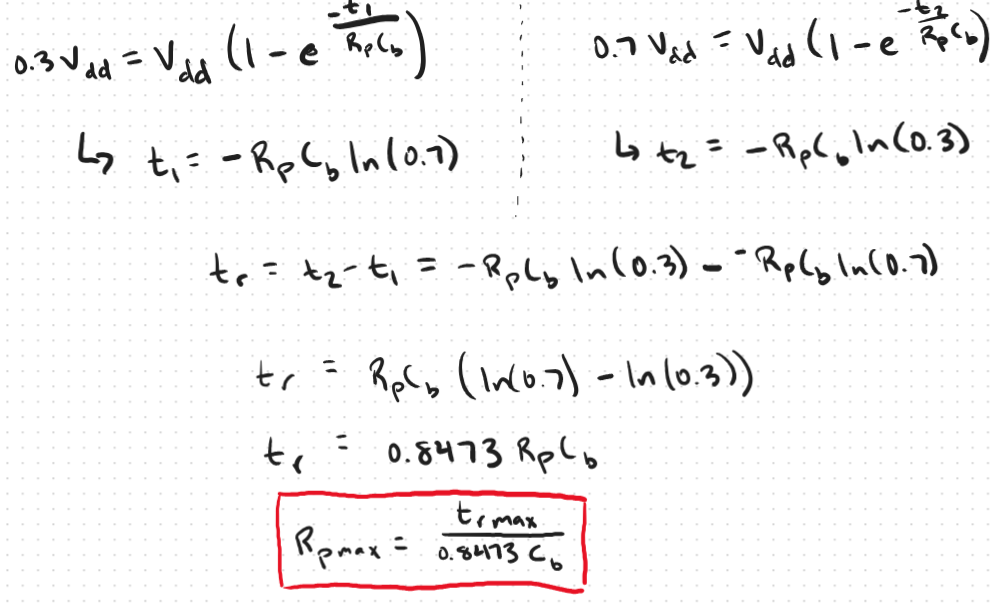 0.3 V_dd = V_dd (1 - e^(-t_1/(R_p C_b)))
0.7 V_dd = V_dd (1 - e^(-t_2/(R_p C_b)))
↳ t_1 = -R_p C_b ln(0.7)
↳ t_2 = -R_p C_b ln(0.3)
t_r = t_2 - t_1 = -R_p C_b ln(0.3) - -R_p C_b ln(0.7)
t_r = R_p C_b (ln(0.7) - ln(0.3))
t_r = 0.8473 R_p C_b
R_pmax = t_rmax / (0.8473 C_b)